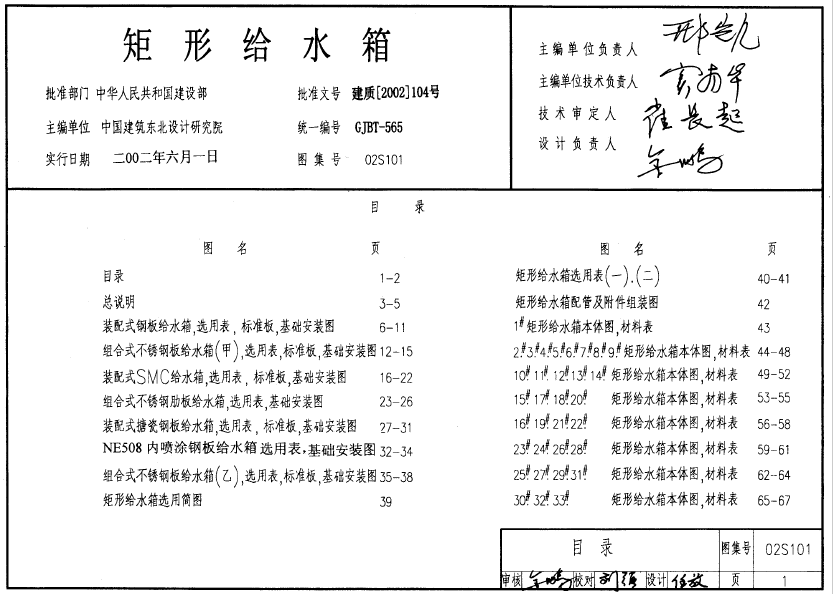 矩形给水箱
批准部门 中华人民共和国建设部 批准文号 建质[2002]104号
主编单位 中国建筑东北设计研究院 统一编号 GJBT-565
实行日期 二00二年六月一日 图集号 02S101
主编单位负责人
主编单位技术负责人
技术审定人
设计负责人
目 录
图 名 页
目录 1-2
总说明 3-5
装配式钢板给水箱,选用表,标准板,基础安装图 6-11
组合式不锈钢板给水箱(甲),选用表,标准板,基础安装图 12-15
装配式SMC给水箱,选用表,标准板,基础安装图 16-22
组合式不锈钢肋板给水箱,选用表,基础安装图 23-26
装配式搪瓷钢板给水箱,选用表,标准板,基础安装图 27-31
NE508内喷涂钢板给水箱选用表,基础安装图 32-34
组合式不锈钢板给水箱(乙),选用表,标准板,基础安装图 35-38
矩形给水箱选用简图 39
图 名 页
矩形给水箱选用表(一).(二) 40-41
矩形给水箱配管及附件组装图 42
1#矩形给水箱本体图,材料表 43
2#.3#.4#.5#.6#.7#.8#.9#矩形给水箱本体图,材料表 44-48
10#.11#.12#.13#.14# 矩形给水箱本体图,材料表 49-52
15#.17#.18#.20# 矩形给水箱本体图,材料表 53-55
16#.19#.21#.22# 矩形给水箱本体图,材料表 56-58
23#.24#.26#.28# 矩形给水箱本体图,材料表 59-61
25#.27#.29#.31# 矩形给水箱本体图,材料表 62-64
30#.32#.33# 矩形给水箱本体图,材料表 65-67
目 录 图集号 02S101
审核 校对 设计 页 1